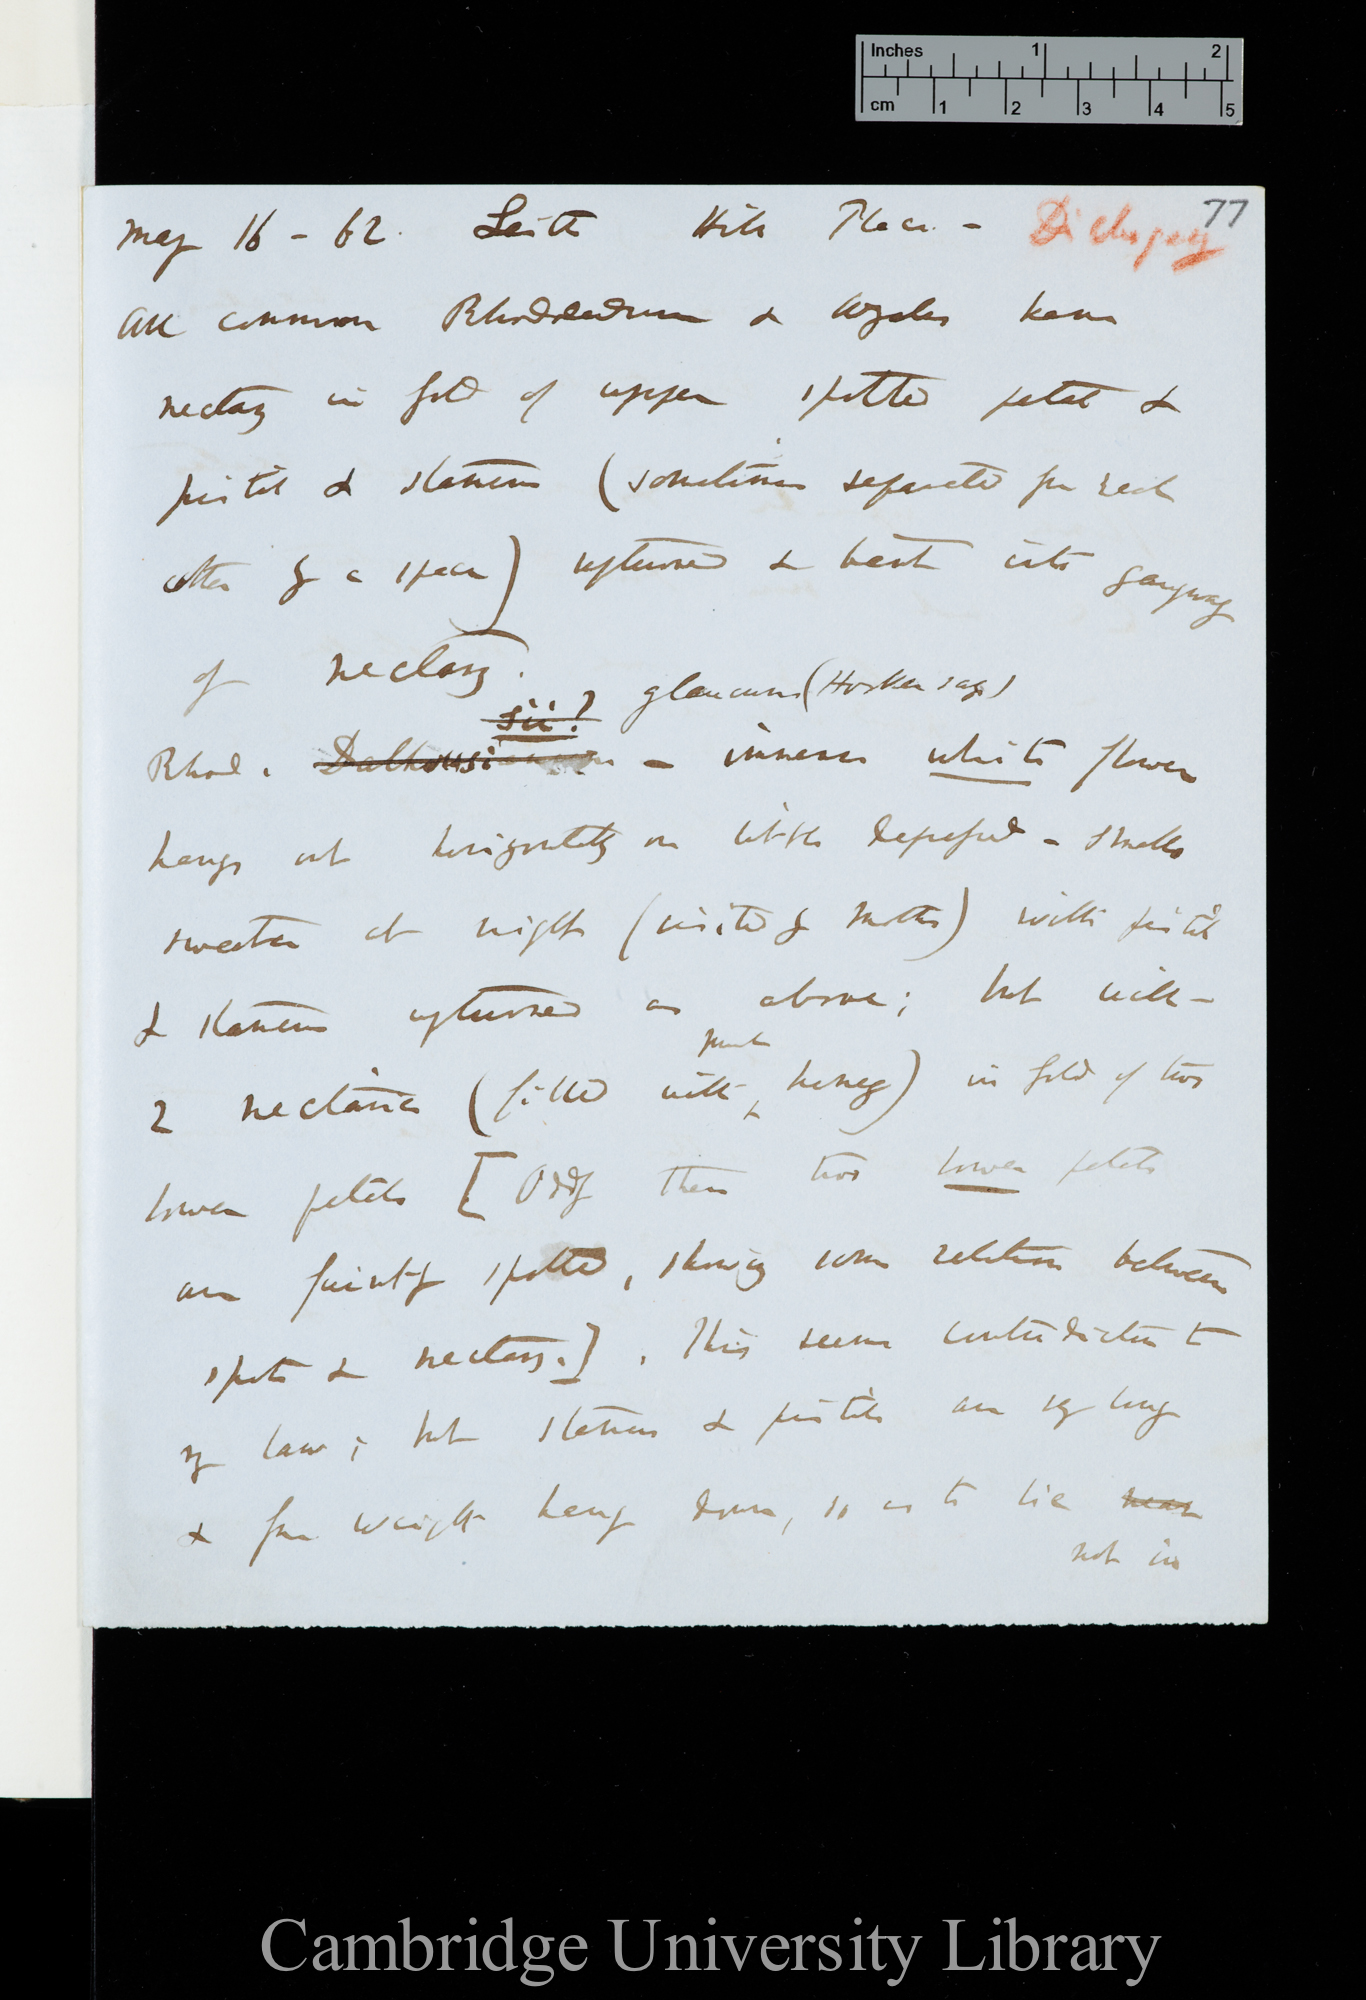 Inches 1 2
cm 1 2 3 4 5
77
May 16 - 62. Leith Hill Place. - Dichogamy
All common Rhododendrum & Azalea have
nectary in fold of upper spotted petal &
pistil & stamens (sometimes separated from each
other by a space) upturned & bent into gangway
of nectary.
sii? glaucum (Hooker says)
Rhod. Dalhousi - immense white flower
hangs out horizontally or little depressed - smells
sweeter at night (visited by moths) with pistil
& stamens upturned as above; but with -
much
2 nectaries (filled with honey) in fold of two
lower petals [Oddly these two lower petals
are faintly spotted, showing some relation between
spots & nectary.]. This seems contradiction to
my law; but stamens & pistils are so long
& from weight hang down, so as to lie near
not in
Cambridge University Library